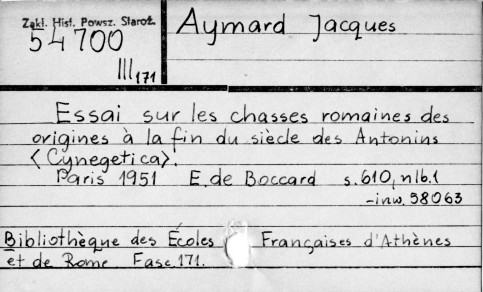 Zakł. Hist. Powsz. Staroż.
54700
III 171
Aymard Jacques
Essai sur les chasses romaines des
origines à la fin du siècle des Antonins
<Cynegetica>.
Paris 1951 E. de Boccard s. 610, nlb. 1
-inw. 58063
Bibliothèque des Écoles Françaises d'Athènes
et de Rome Fasc. 171.